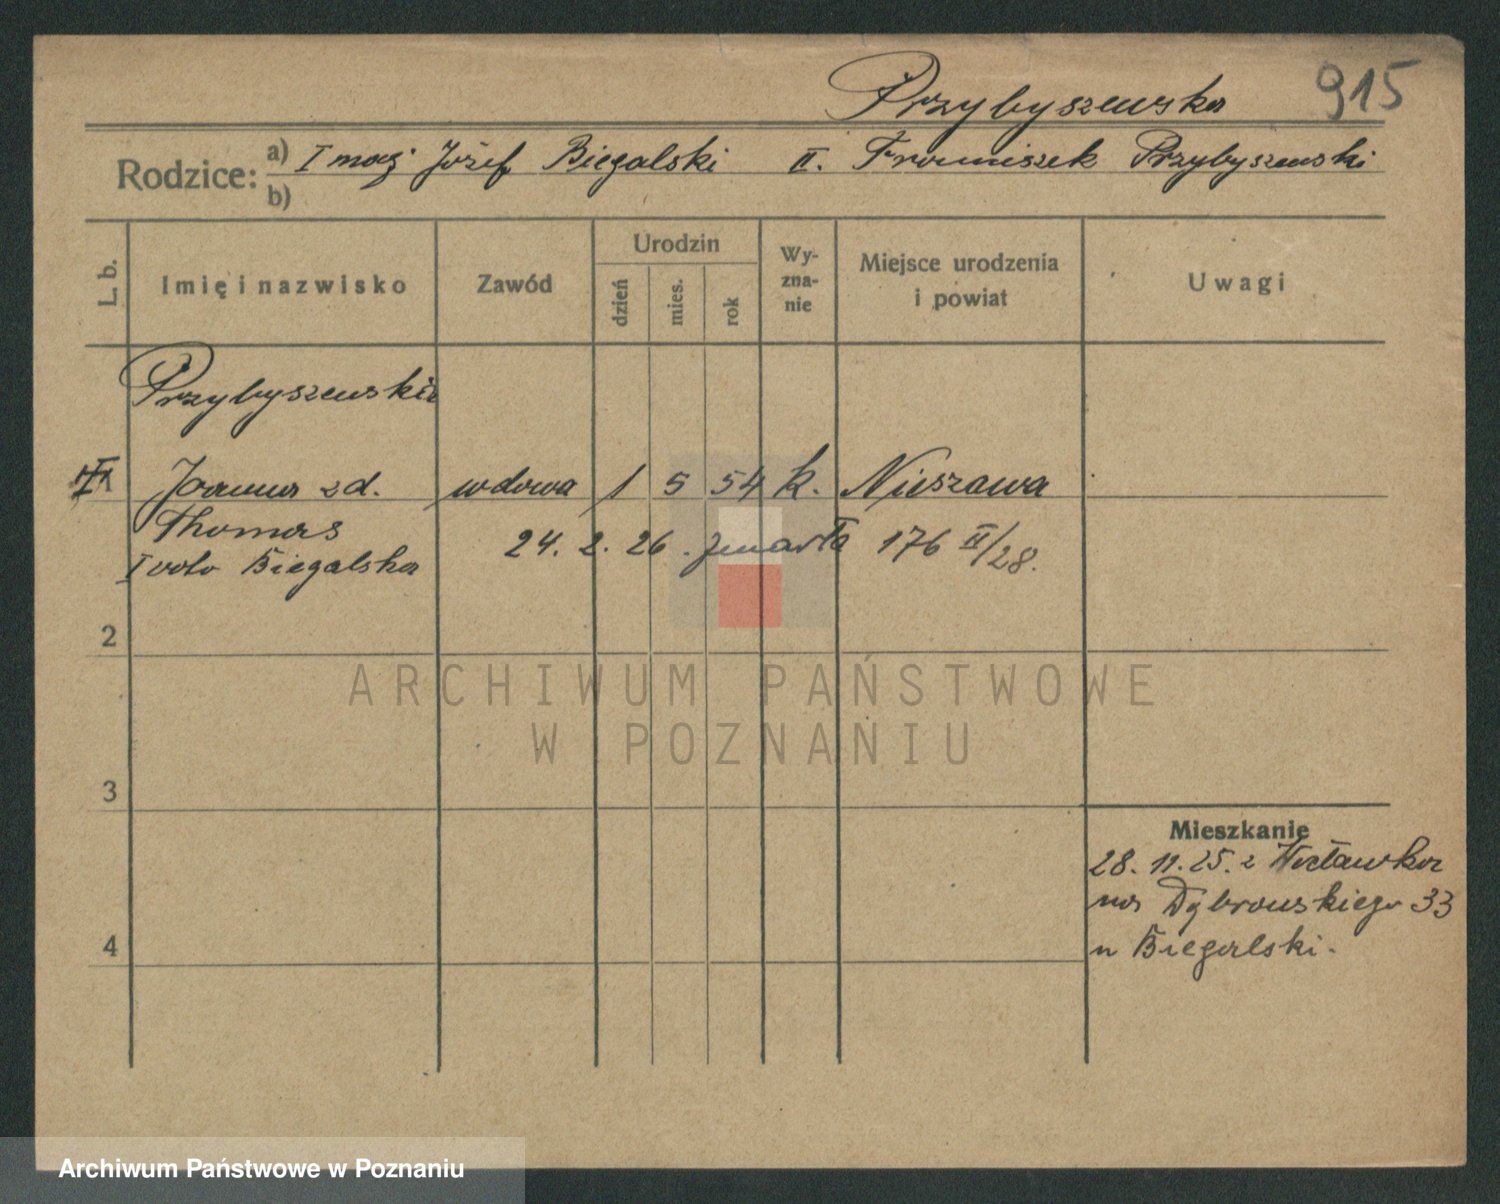 Przybyszewska 915
Rodzice: a) I mąż Józef Biegalski II. Franciszek Przybyszewski
b)
L. b. Imię i nazwisko Zawód Urodzin dzień mies. rok Wy-zna-nie Miejsce urodzenia i powiat Uwagi
Przybyszewska
Joanna zd. wdowa 1 5 54 k. Nieszawa
Thomas 24. 2. 26. zmarła 176 II/28.
I voto Biegalska
2
3
4
Mieszkanie
28. 11. 25. z Włocławka
na Dąbrowskiego 33
u Biegalski.
ARCHIWUM PAŃSTWOWE
W POZNANIU
Archiwum Państwowe w Poznaniu